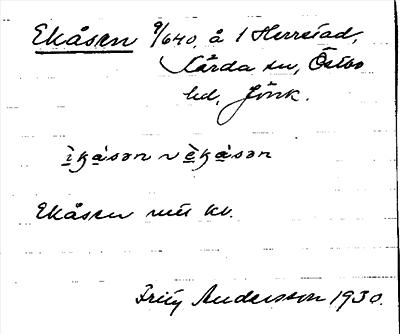 Ekåsen 9/640, å 1 Herrestad,
Kärda sn, Östbo
hd, Jönk.
ìkåsən ~ èkåsən
Ekåsen
Fritz Andersson 1930.